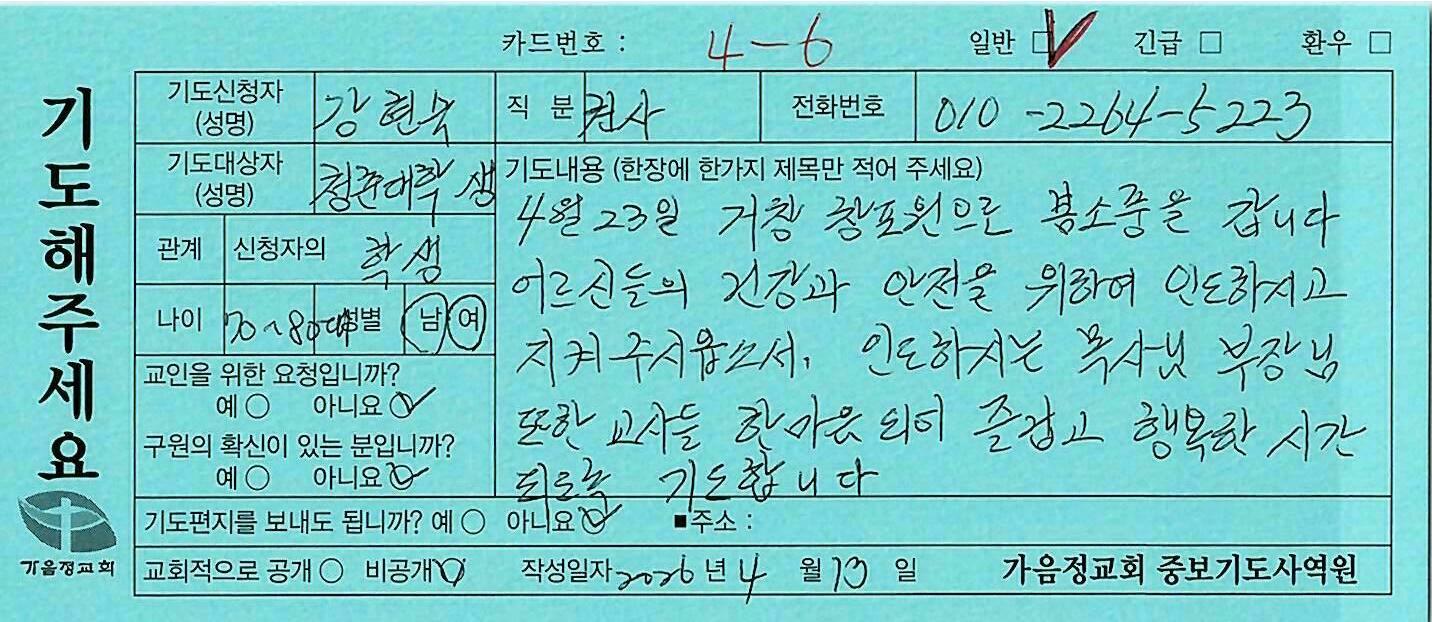 카드번호 : 4-6 일반 □ 긴급 □ 환우 □
기도해주세요
기도신청자 (성명) 강현숙 직 분 권사 전화번호 010-2264-5223
기도대상자 (성명) 청춘대학생
관계 신청자의 학생
나이 70~80대 성별 남 여
교인을 위한 요청입니까?
예○ 아니요○
구원의 확신이 있는 분입니까?
예○ 아니요○
기도내용 (한장에 한가지 제목만 적어 주세요)
4월 23일 거창 창포원으로 봄소풍을 갑니다
어르신들의 건강과 안전을 위하여 인도하시고
지켜 주시옵소서, 인도하시는 목사님 부장님
또한 교사들 한마음 되어 즐겁고 행복한 시간
되도록 기도합니다
기도편지를 보내도 됩니까? 예○ 아니요○ ■주소 :
교회적으로 공개○ 비공개○ 작성일자 2026년 4월 13일 가음정교회 중보기도사역원
가음정교회